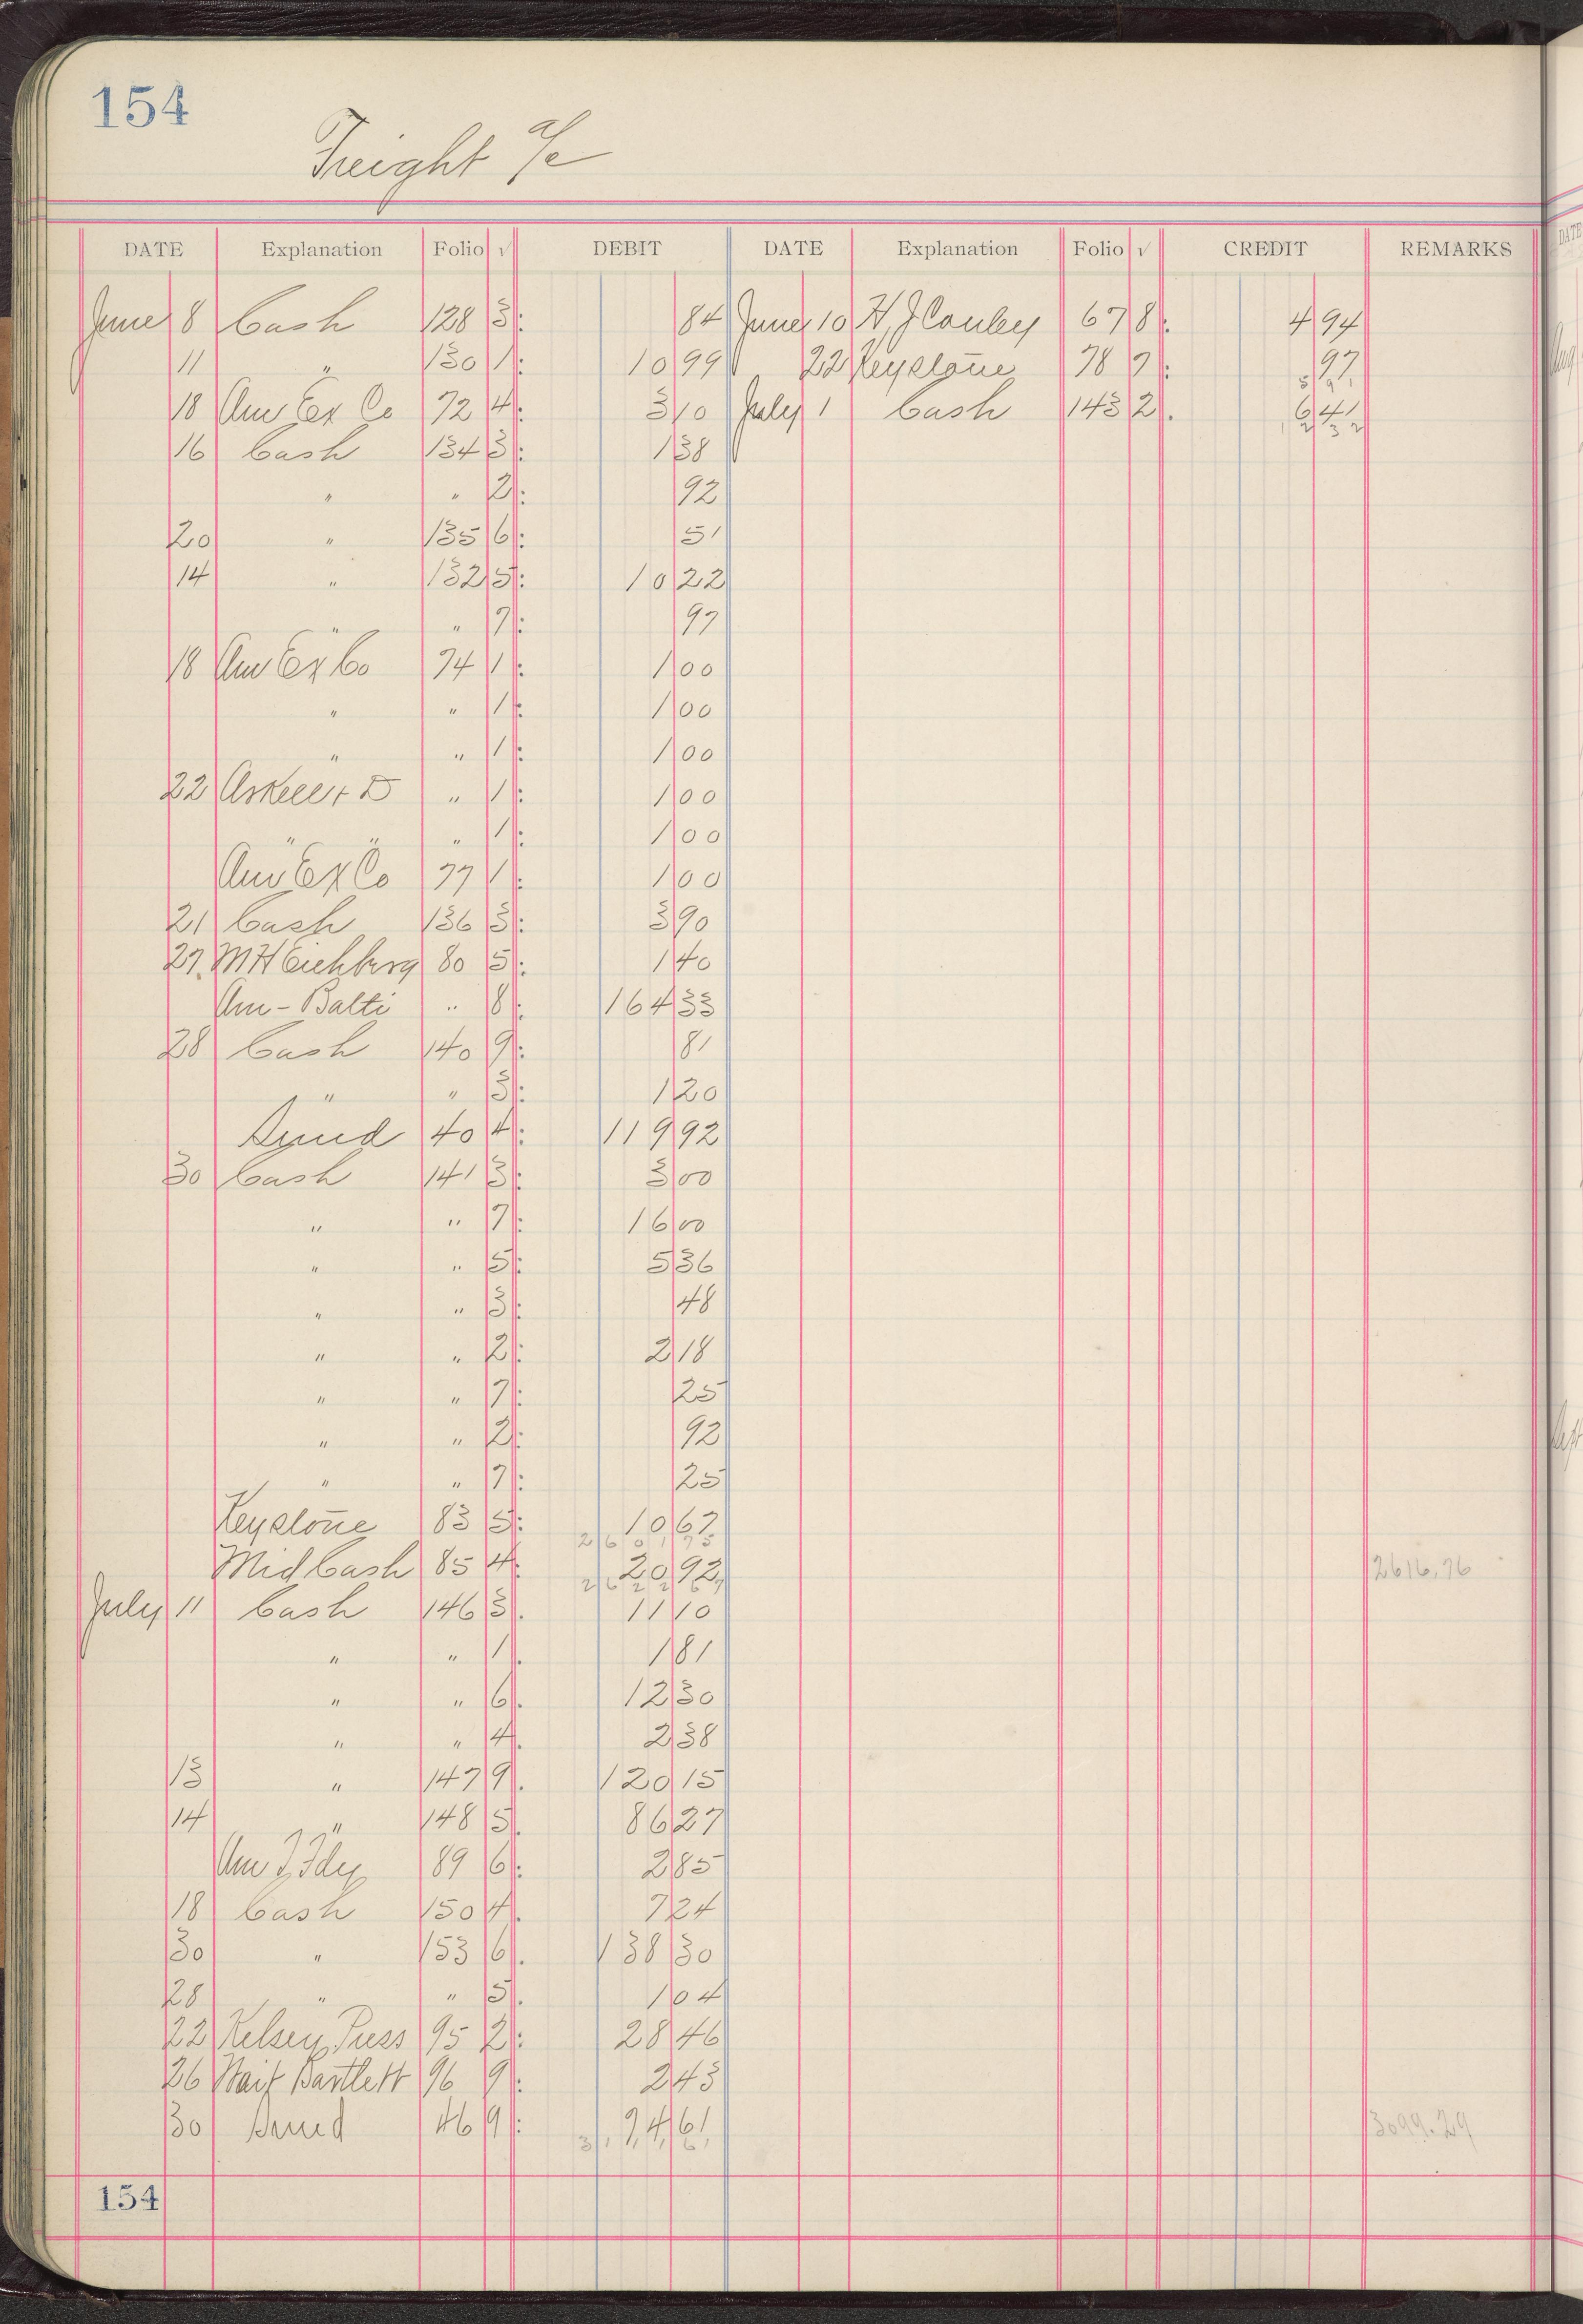 154
Freight a/c
DATE Explanation Folio √ DEBIT DATE Explanation Folio √ CREDIT REMARKS
June 8 Cash 128 3 84 June 10 H, J Conley 67 8 4 94
11 " 130 1 10 99 22 Keystone 78 7 97
18 Am Ex Co 72 4 3 10 July 1 Cash 143 2 6 41
16 Cash 134 3 1 38
" " 2 92
20 " 135 6 51
14 " 132 5 10 22
" " 7 97
18 Am Ex Co 74 1 1 00
" " 1 1 00
" " 1 1 00
22 Askell + D " 1 1 00
" " " 1 1 00
Am Ex Co 77 1 1 00
21 Cash 136 3 3 90
27 M H Eichberg 80 5 1 40
Am - Balti " 8 164 33
28 Cash 140 9 81
" " 3 1 20
Sund 40 4 119 92
30 Cash 141 3 3 00
" " 7 16 00
" " 5 5 36
" " 3 48
" " 2 2 18
" " 7 25
" " 2 92
" " 7 25
Keystone 83 5 10 67
2601 75
Mid Cash 85 4 20 92 2616.76
2622 67
July 11 Cash 146 3 11 10
" " 1 1 81
" " 6 12 30
" " 4 2 38
13 " 147 9 120 15
14 " 148 5 86 27
Am T Fdy 89 6 2 85
18 Cash 150 4 7 24
30 " 153 6 138 30
28 " " 5 1 04
22 Kelsey Press 95 2 28 46
26 Hait Bartlett 96 9 2 43
30 Sund 46 9 74 61 3099.29
154